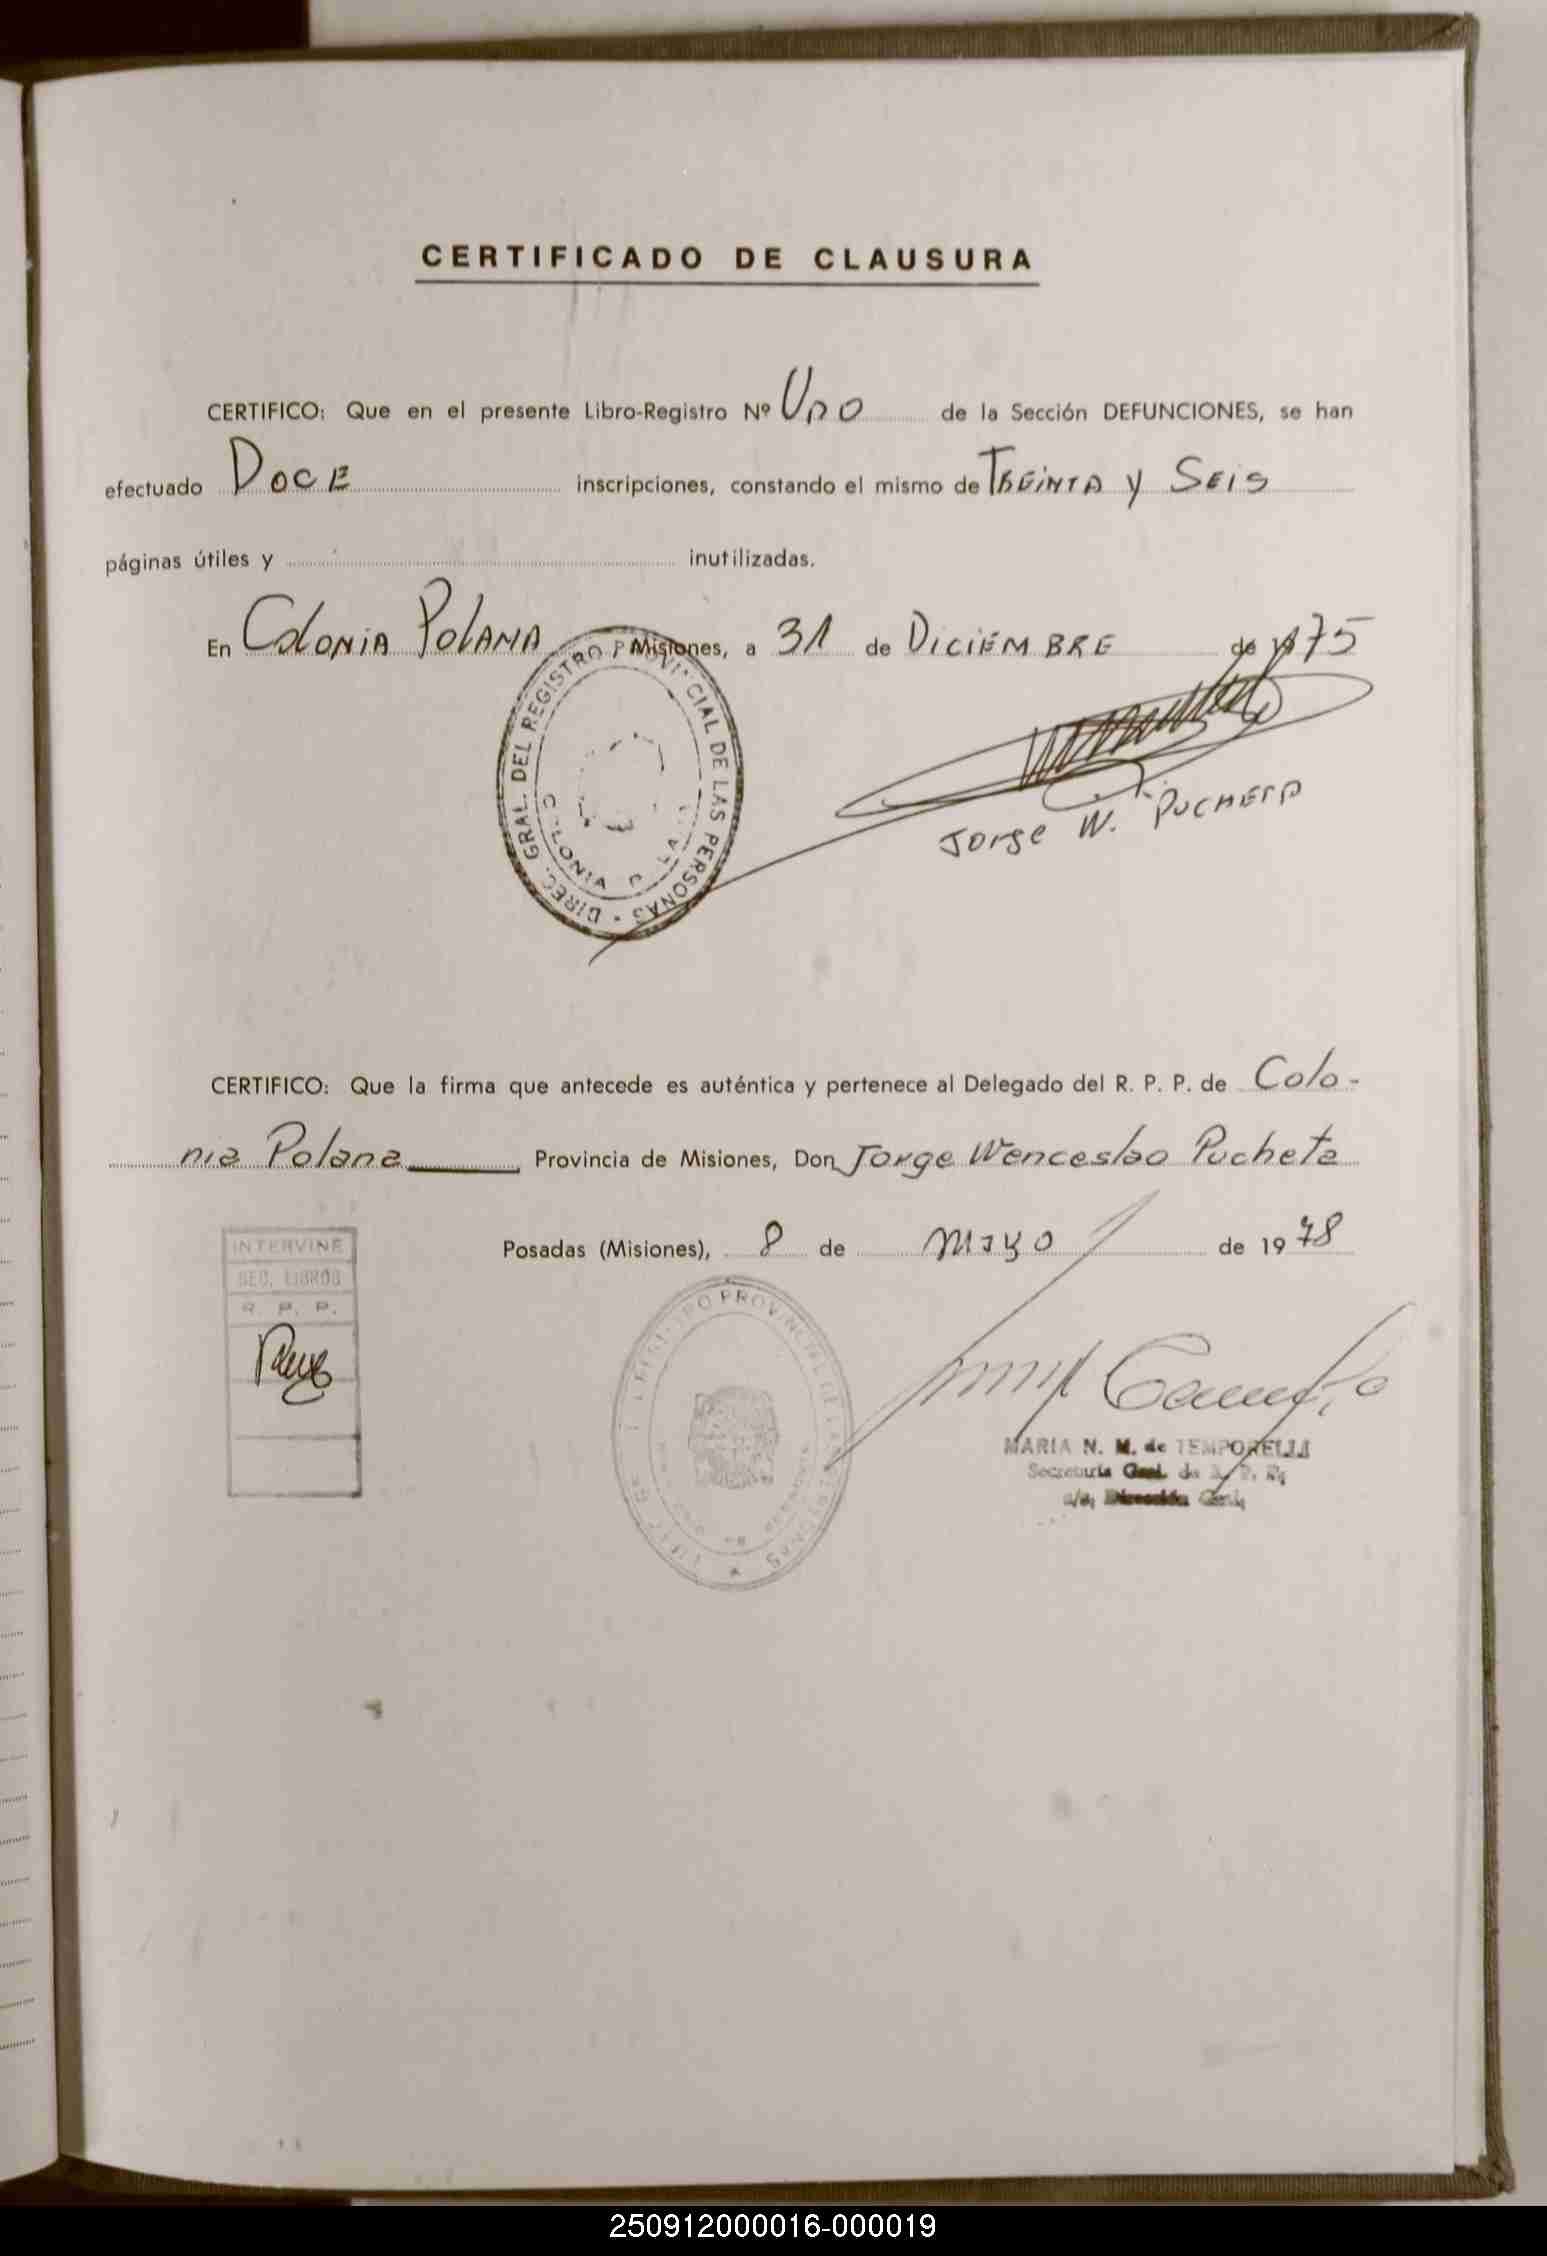 CERTIFICADO DE CLAUSURA
CERTIFICO: Que en el presente Libro-Registro Nº Uno de la Sección DEFUNCIONES, se han
efectuado Doce inscripciones, constando el mismo de Treinta y Seis
páginas útiles y inutilizadas.
En Colonia Polana Misiones, a 31 de Diciembre de 1975
DIREC. GRAL. DEL REGISTRO PROVINCIAL DE LAS PERSONAS
COLONIA
Jorge W. Pucheta
CERTIFICO: Que la firma que antecede es auténtica y pertenece al Delegado del R. P. P. de Colo-
nia Polana Provincia de Misiones, Don Jorge Wenceslao Pucheta
Posadas (Misiones), 8 de Mayo de 1978
INTERVINE
SEC. LIBROS
R. P. P.
REGISTRO PROVINCIAL DE LAS PERSONAS
MARIA N. M. de TEMPORELLI
Secretaria Gral. de R. P. P.
a/c. Dirección Gral.
250912000016-000019